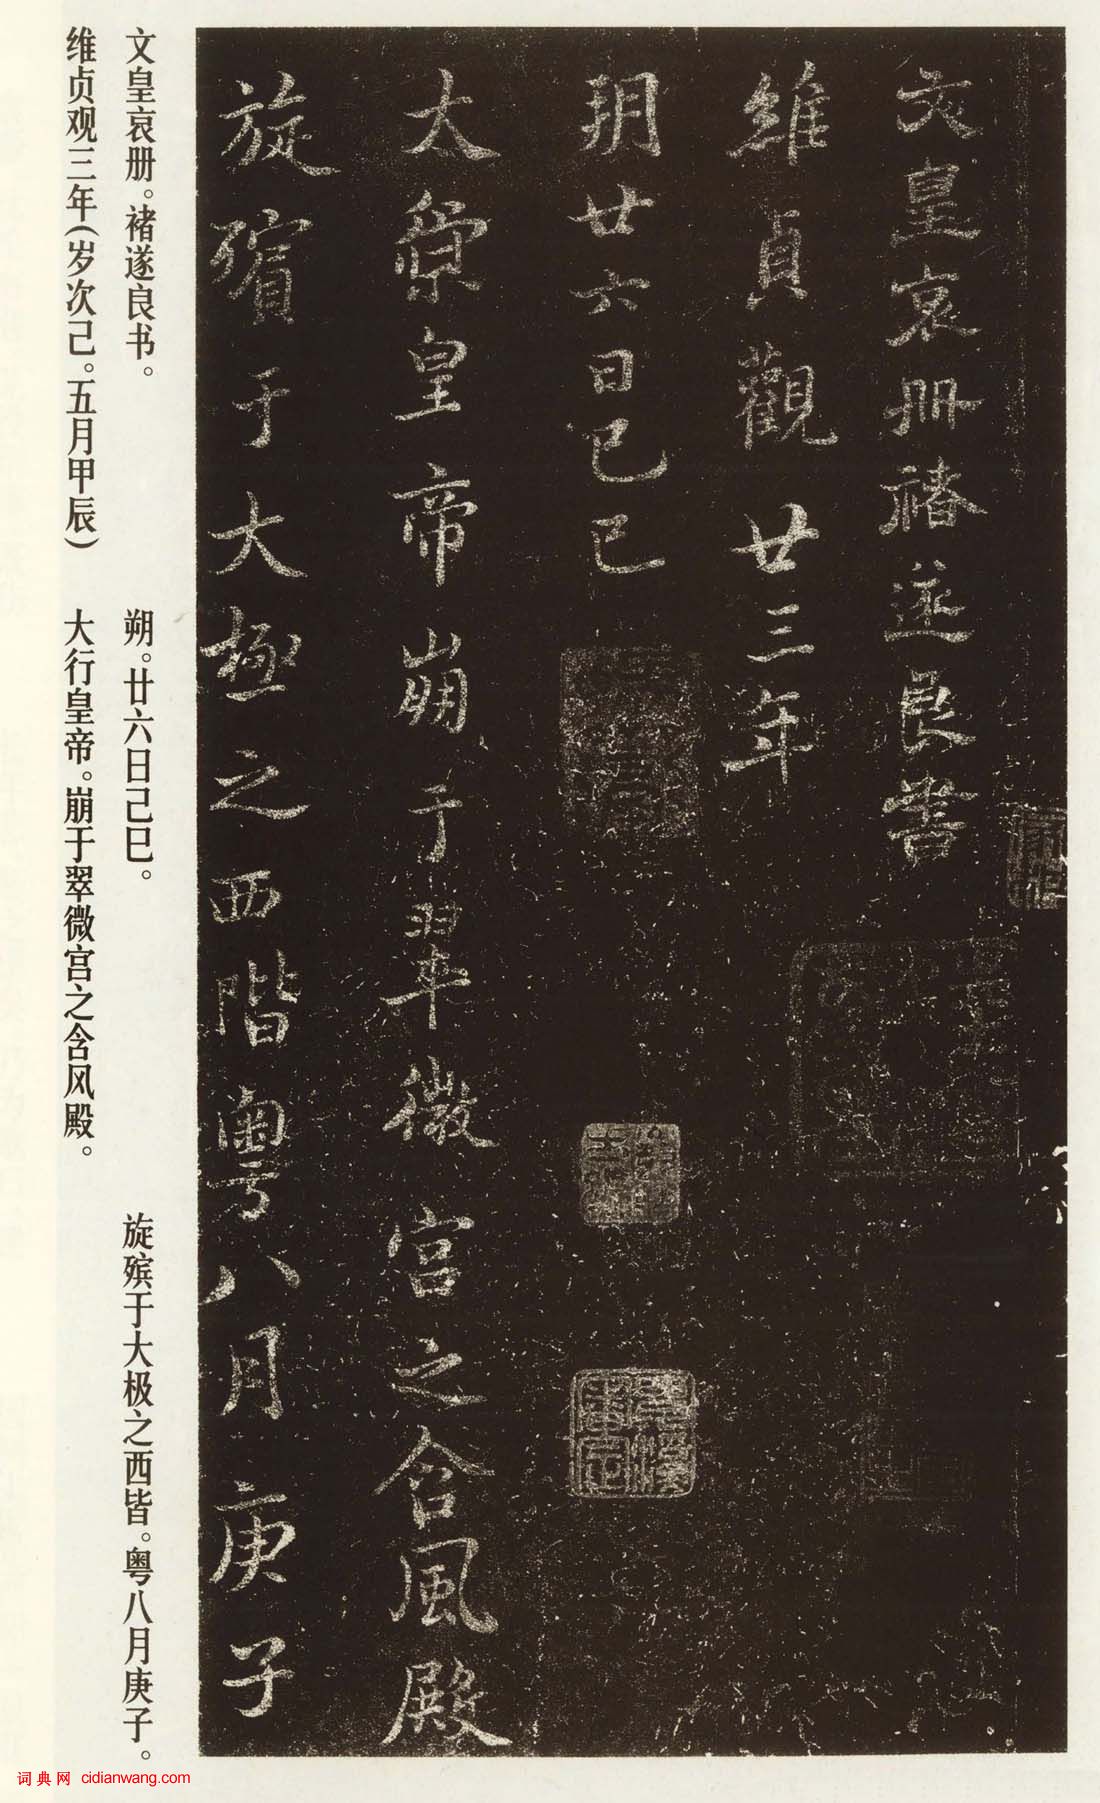 文皇哀冊褚遂良書
維貞觀廿三年
玥廿六日已已
太宗皇帝崩于翠微宮之含風殿
旋殯于大極之西階粵八月庚子
文皇哀册。褚遂良书。
维贞观三年(岁次己。五月甲辰)
朔。廿六日己巳。
大行皇帝。崩于翠微宫之含风殿。
旋殡于大极之西皆。粤八月庚子。
词典网 cidianwang.com